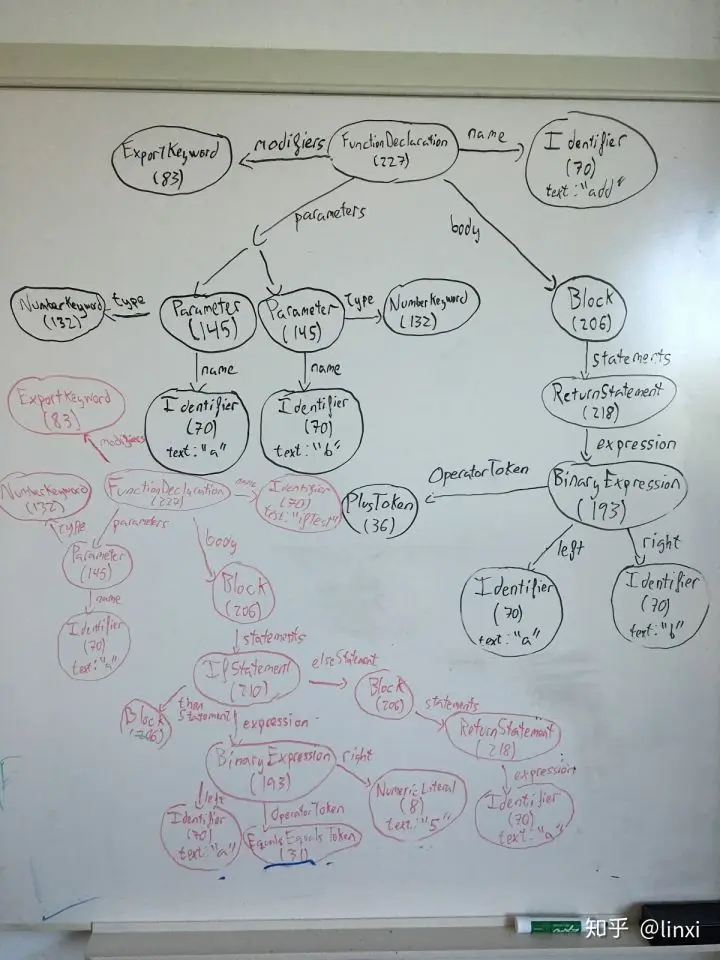 ExportKeyword
(83)
modifiers
FunctionDeclaration
(227)
name
Identifier
(70)
text:"add"
parameters
body
NumberKeyword
(132)
type
Parameter
(145)
Parameter
(145)
type
NumberKeyword
(132)
Block
(206)
name
name
statements
Identifier
(70)
text:"a"
Identifier
(70)
text:"b"
ReturnStatement
(218)
expression
OperatorToken
PlusToken
(36)
BinaryExpression
(193)
left
right
Identifier
(70)
text:"a"
Identifier
(70)
text:"b"
ExportKeyword
(83)
modifiers
NumberKeyword
(132)
type
FunctionDeclaration
(227)
name
Identifier
(70)
text:"ifTest"
parameters
body
Parameter
(145)
name
Identifier
(70)
text:"a"
Block
(206)
statements
IfStatement
(210)
elseStatement
Block
(206)
then
Statement
Block
(206)
expression
statements
ReturnStatement
(218)
BinaryExpression
(193)
right
expression
left
OperatorToken
NumericLiteral
(8)
text:"5"
Identifier
(70)
text:"a"
Identifier
(70)
text:"a"
EqualsEqualsToken
(31)
知乎 @linxi